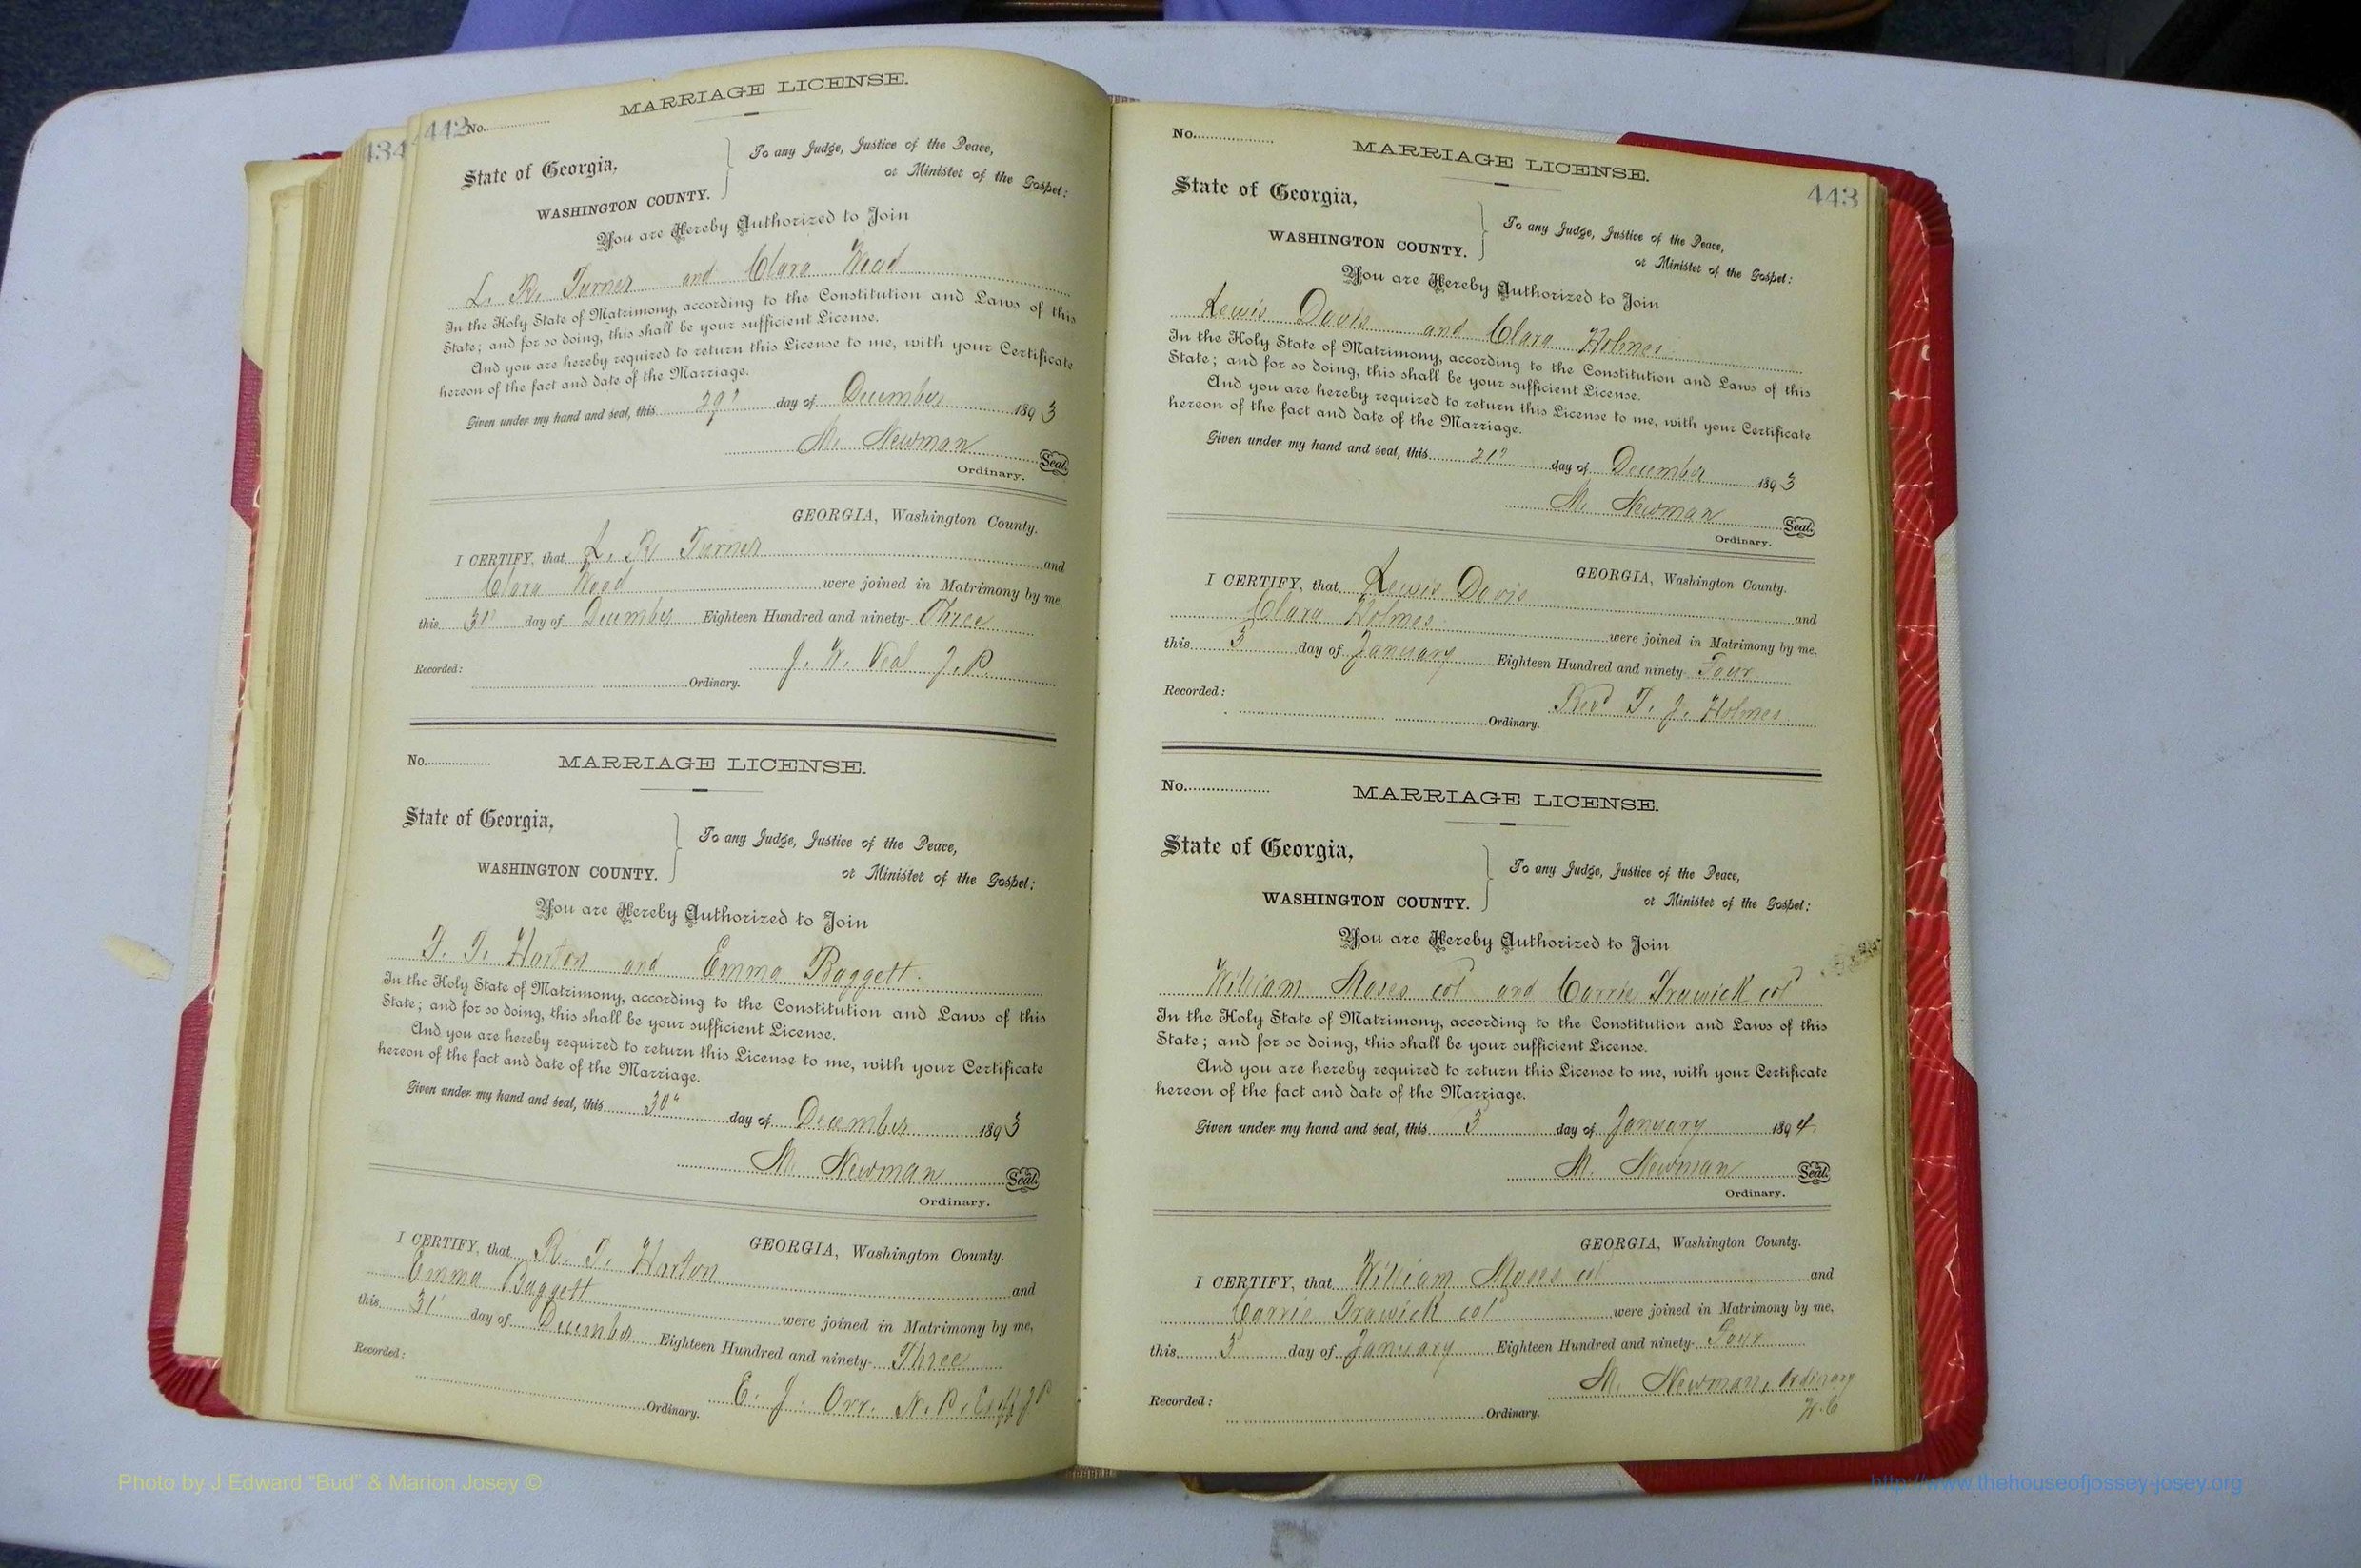 434
442
No.
MARRIAGE LICENSE.
State of Georgia,
WASHINGTON COUNTY.
To any Judge, Justice of the Peace,
or Minister of the Gospel:
You are Hereby Authorized to Join
L. R. Turner and Clara Wood
In the Holy State of Matrimony, according to the Constitution and Laws of this
State; and for so doing, this shall be your sufficient License.
And you are hereby required to return this License to me, with your Certificate
hereon of the fact and date of the Marriage.
Given under my hand and seal, this 29" day of December 1893
M. Newman Seal.
Ordinary.
GEORGIA, Washington County.
I CERTIFY, that L. R. Turner and
Clara Wood were joined in Matrimony by me,
this 31" day of December Eighteen Hundred and ninety-Three
J. W. Veal J.P.
Recorded: Ordinary.
No.
MARRIAGE LICENSE.
State of Georgia,
WASHINGTON COUNTY.
To any Judge, Justice of the Peace,
or Minister of the Gospel:
You are Hereby Authorized to Join
T. Harton and Emma Baggett.
In the Holy State of Matrimony, according to the Constitution and Laws of this
State; and for so doing, this shall be your sufficient License.
And you are hereby required to return this License to me, with your Certificate
hereon of the fact and date of the Marriage.
Given under my hand and seal, this 30" day of December 1893
M. Newman Seal.
Ordinary.
GEORGIA, Washington County.
I CERTIFY, that R. T. Harton and
Emma Baggett were joined in Matrimony by me,
this 31" day of December Eighteen Hundred and ninety-Three
E. J. Orr. N.P. Exoff JP
Recorded: Ordinary.
No.
MARRIAGE LICENSE.
443
State of Georgia,
WASHINGTON COUNTY.
To any Judge, Justice of the Peace,
or Minister of the Gospel:
You are Hereby Authorized to Join
Lewis Davis and Clara Holmes
In the Holy State of Matrimony, according to the Constitution and Laws of this
State; and for so doing, this shall be your sufficient License.
And you are hereby required to return this License to me, with your Certificate
hereon of the fact and date of the Marriage.
Given under my hand and seal, this day of December 1893
M. Newman Seal.
Ordinary.
GEORGIA, Washington County.
I CERTIFY, that Lewis Davis and
Clara Holmes were joined in Matrimony by me,
this 3 day of January Eighteen Hundred and ninety-Four
Revd T. J. Holmes
Recorded: Ordinary.
No.
MARRIAGE LICENSE.
State of Georgia,
WASHINGTON COUNTY.
To any Judge, Justice of the Peace,
or Minister of the Gospel:
You are Hereby Authorized to Join
William Moses col and Carrie Trawick col
In the Holy State of Matrimony, according to the Constitution and Laws of this
State; and for so doing, this shall be your sufficient License.
And you are hereby required to return this License to me, with your Certificate
hereon of the fact and date of the Marriage.
Given under my hand and seal, this 3 day of January 1894.
M. Newman Seal.
Ordinary.
GEORGIA, Washington County.
I CERTIFY, that William Moses col and
Carrie Trawick col were joined in Matrimony by me,
this 3 day of January Eighteen Hundred and ninety-Four
M. Newman, Ordinary
W.C
Recorded: Ordinary.
Photo by J Edward "Bud" & Marion Josey ©
http://www.thehouseofjossey-josey.org